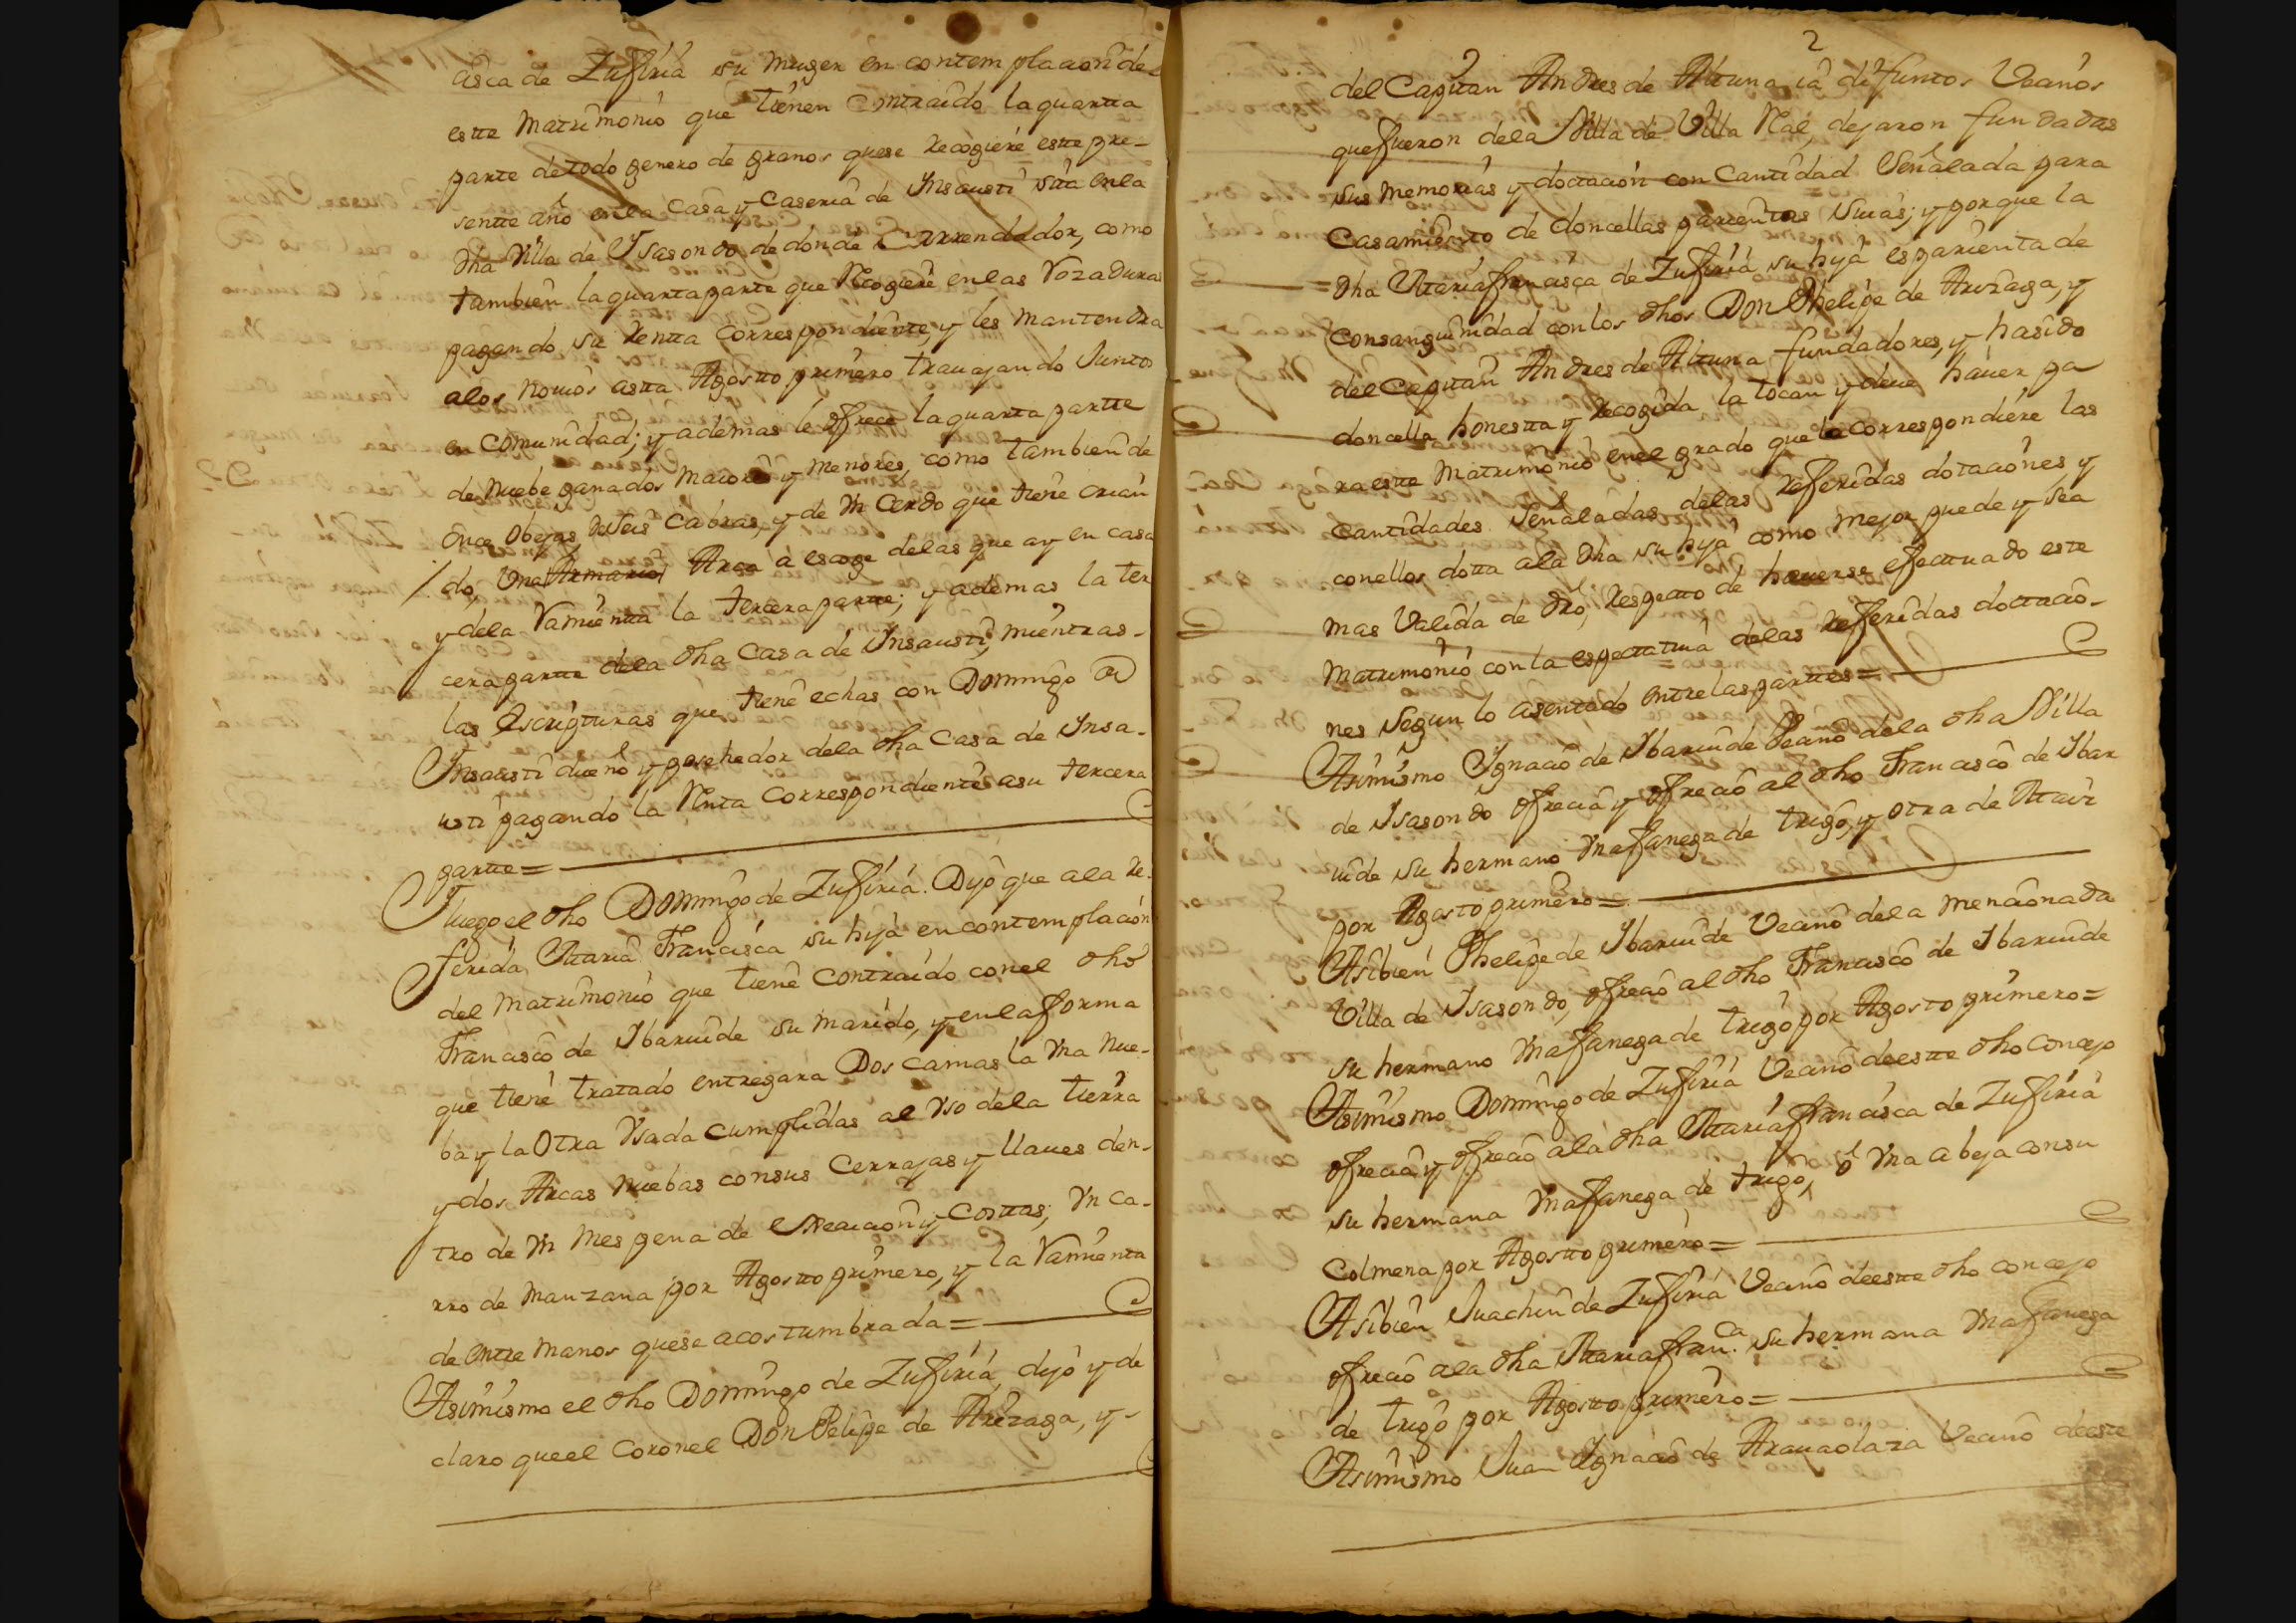 cisca de Zufiria su muger en contemplacion de
este Matrimonio que tienen contraido la quarta
parte de todo genero de granos que se recogiere este pre-
sentte año en la Casa y Caseria de Insausti sita en la
dha Villa de Isasondo de donde es Arrendador, como
tambien la quarta parte que Recogiere en las Rozaduras
pagando su rentta correspondiente, y les mantendra
a los novios astta Agostto primero travajando Juntos
en comunidad; y ademas le ofrece la quarta partte
de nuebe ganados maiores y menores, como tambien de
Once Obejas, seis Cabras, y de Vn Cerdo que tiene crian
do, Vna Armario Arca a escoge de las que ay en casa
y dela Ramientta la tercera partte; y ademas la ter
cera partte dela dha Casa de Insausti, mientras-
las Escripturas que tiene echas con Domingo de
Insausti dueño y posehedor dela dha Casa de Insa-
usti pagando la Renta correspondiente a su tercera
partte=
Luego el dho Domingo de Zufiria. Dijo que a la re-
ferida Maria Francisca su hija en contemplacion
del Matrimonio que tiene contraido con el dho
Francisco de Ibarluide su marido, y en la forma
que tiene tratado entregara Dos camas la Vna nue-
ba y la Otra Vsada cumplidas al Vso dela tierra
y dos Arcas nuebas con sus Cerrajas y llaves den-
tro de Vn mes pena de execucion y costtas; Vn Ca-
rro de Manzana por Agostto primero, y la Ramienta
de entre manos que se acostumbrada=
Asimismo el dho Domingo de Zufiria, dijo y de
claro que el Coronel Don Phelipe de Arizaga, y-
2
del Capitan Andres de Altuna ia difuntos Vecinos
que fueron dela Villa de Villa Ral, dejaron fundadas
sus memorias y dottacion con Cantidad Señalada para
Casamiento de doncellas parientas suias; y porque la
=dha Maria francisca de Zufiria su hija es parienta de
Consanguinidad con los dhos Don Phelipe de Arizaga, y
del Capitan Andres de Altuna fundadores, y ha sido
doncella honestta y recogida la tocan y deve haver pa
ra este Matrimonio en el grado que la correspondiere las
Cantidades Señaladas delas referidas dotaciones y
con ellos dotta a la dha su hija como mejor puede y sea
mas Valida de dro, respecto de haverse efecttuado este
Matrimonio con la espectativa delas referidas dottacio-
nes Segun lo asentado entre las parttes=
Asimismo Ignacio de Ibarluide Vecino dela dha Villa
de Isasondo ofrecia y ofrecio al dho Francisco de Ibar
luide su hermano Vna fanega de trigo, y otra de Maiz
por Agosto primero=
Asibien Phelipe de Ibarluide Vecino dela mencionada
Villa de Isasondo, ofrecio al dho Francisco de Ibarluide
su hermano Vna fanega de trigo por Agosto primero=
Asimismo Domingo de Zufiria Vecino de estte dho Concejo
ofrecia y ofrecio a la dha Maria francisca de Zufiria
su hermana Vna fanega de trigo, o Vna abeja con su
Colmena por Agostto primero=
Asibien Juachin de Zufiria Vecino de estte dho concejo
ofrecio a la dha Maria franca su hermana Vna fanega
de trigo por Agostto primero=
Asimismo Juan Ignacio de Aranaolaza Vecino de este